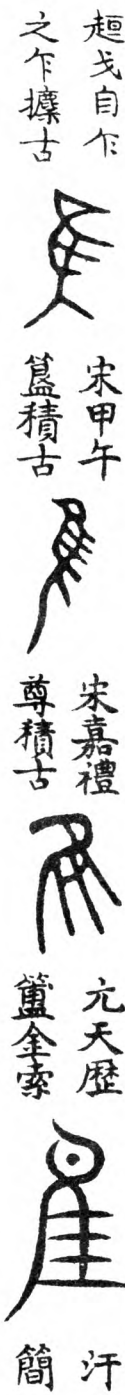 趄戈自乍
之乍攈古
宋甲午
簋積古
宋嘉禮
尊積古
元天歴
簠金索
汗
簡